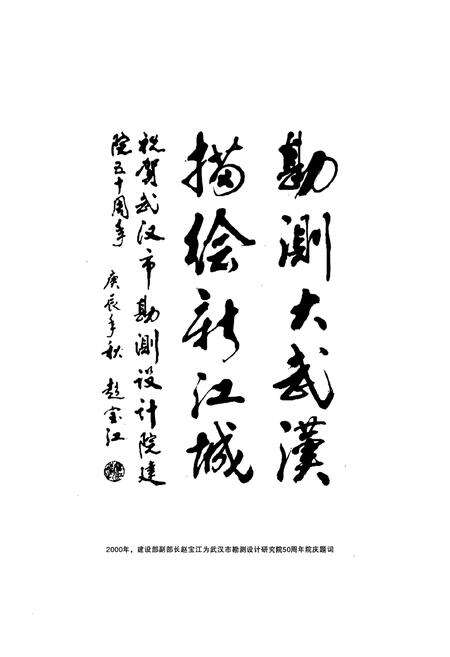 勘测大武漢
描绘新江城
祝贺武汉市勘测设计院建
院五十周年
庚辰年秋 赵宝江
2000年，建设部副部长赵宝江为武汉市勘测设计研究院50周年院庆题词